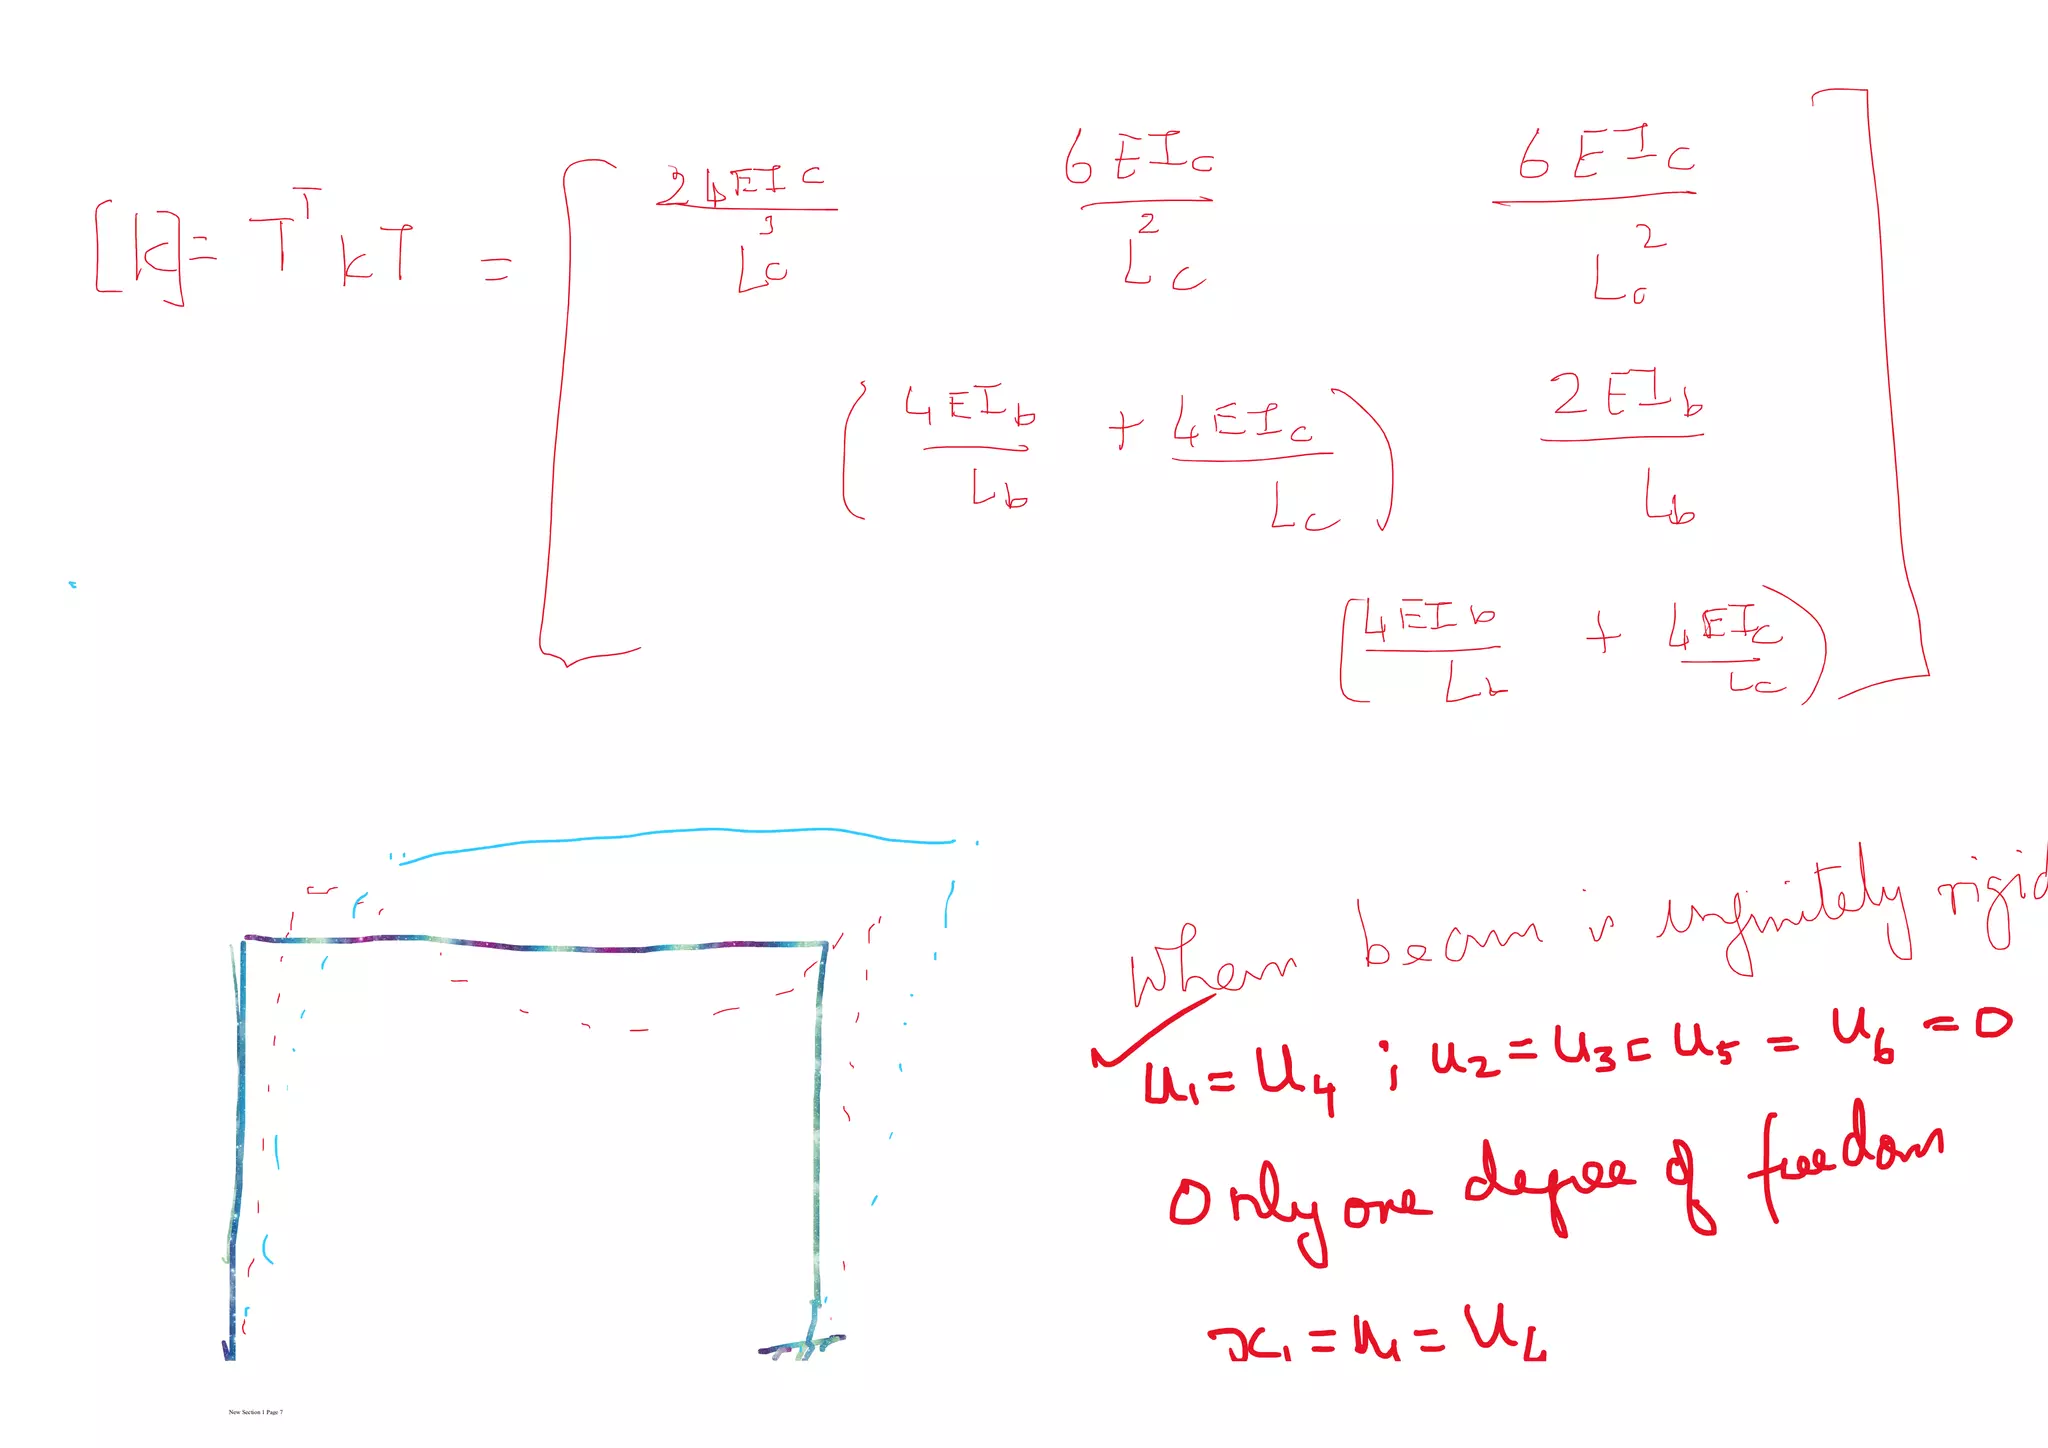 [k] = T^T kT = [ 24EIc/Lc^3 6EIc/Lc^2 6EIc/Lc^2
(4EIb/Lb + 4EIc/Lc) 2EIb/Lb
(4EIb/Lb + 4EIc/Lc) ]
When beam is infinitely rigid
u1 = u4 ; u2 = u3 = u5 = u6 = 0
Only one degree of freedom
x1 = u1 = u4
New Section 1 Page 7